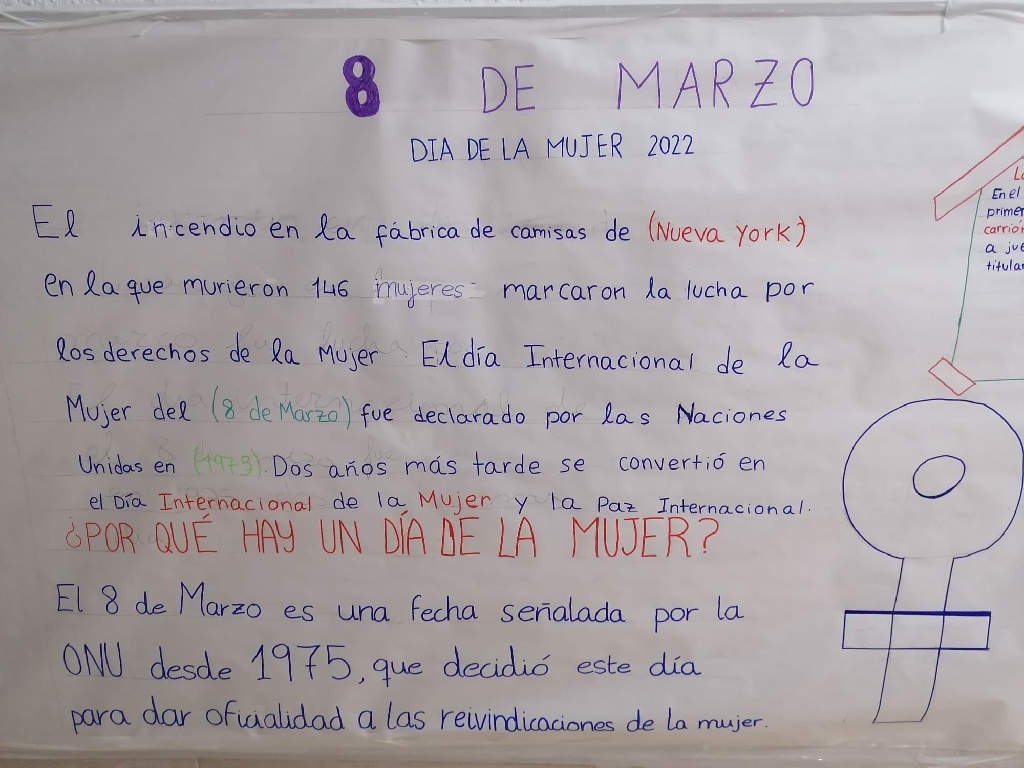 8 DE MARZO
DIA DE LA MUJER 2022
El incendio en la fábrica de camisas de (Nueva York)
en la que murieron 146 mujeres marcaron la lucha por
los derechos de la Mujer. El día Internacional de la
Mujer del (8 de Marzo) fue declarado por las Naciones
Unidas en (1975). Dos años más tarde se convertió en
el Día Internacional de la Mujer y la Paz Internacional.
¿POR QUÉ HAY UN DÍA DE LA MUJER?
El 8 de Marzo es una fecha señalada por la
ONU desde 1975, que decidió este día
para dar oficialidad a las reivindicaciones de la mujer.
En el
a